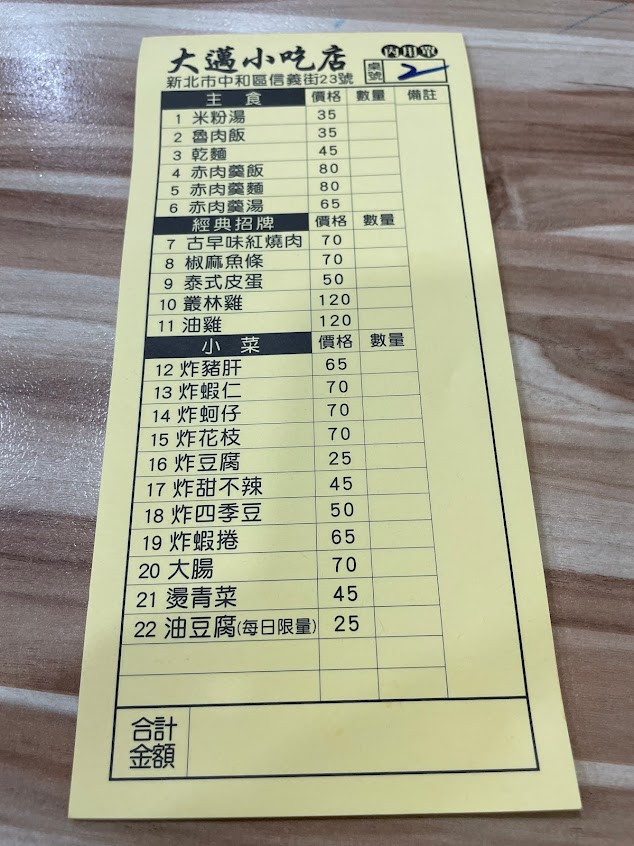 大邁小吃店 內用單
新北市中和區信義街23號 桌號 2
主食 價格 數量 備註
1 米粉湯 35
2 魯肉飯 35
3 乾麵 45
4 赤肉羹飯 80
5 赤肉羹麵 80
6 赤肉羹湯 65
經典招牌 價格 數量
7 古早味紅燒肉 70
8 椒麻魚條 70
9 泰式皮蛋 50
10 叢林雞 120
11 油雞 120
小菜 價格 數量
12 炸豬肝 65
13 炸蝦仁 70
14 炸蚵仔 70
15 炸花枝 70
16 炸豆腐 25
17 炸甜不辣 45
18 炸四季豆 50
19 炸蝦捲 65
20 大腸 70
21 燙青菜 45
22 油豆腐(每日限量) 25
合計
金額